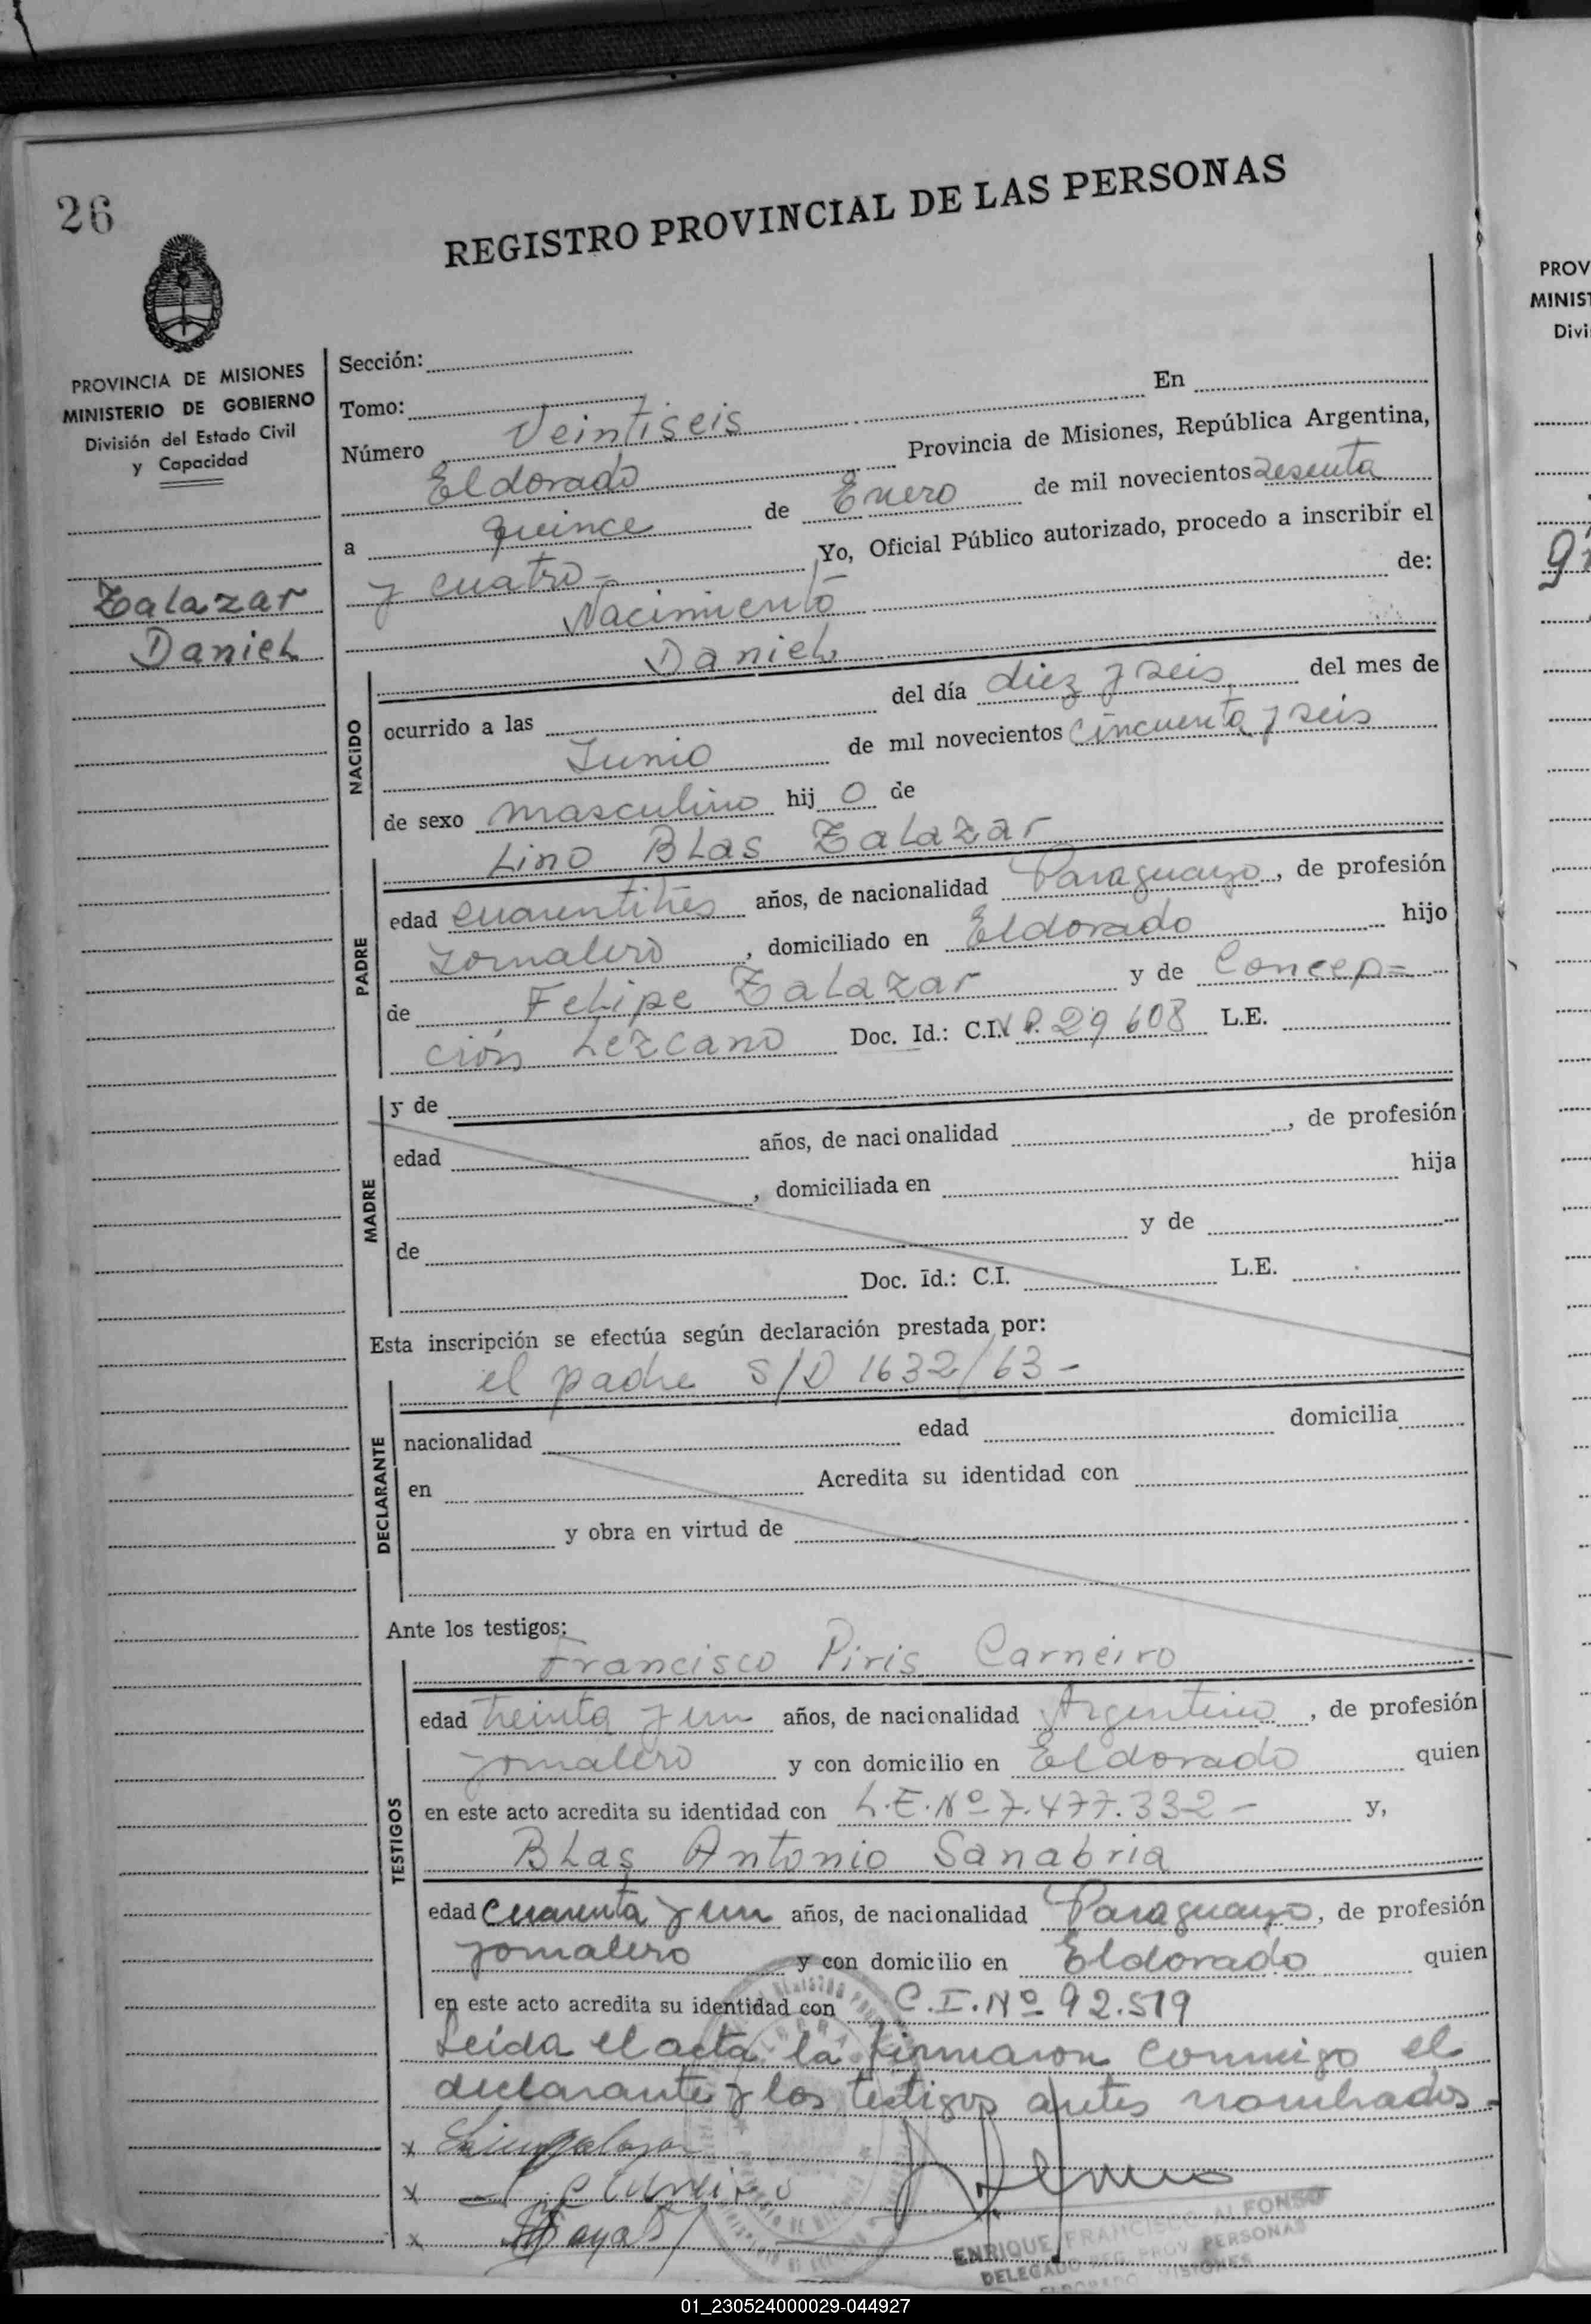 26
REGISTRO PROVINCIAL DE LAS PERSONAS
PROVINCIA DE MISIONES
MINISTERIO DE GOBIERNO
División del Estado Civil
y Capacidad
Zalazar
Daniel
Sección:
Tomo:
Número Veintiseis En
Eldorado Provincia de Misiones, República Argentina,
a quince de Enero de mil novecientos sesenta
y cuatro= Yo, Oficial Público autorizado, procedo a inscribir el
Nacimiento de:
Daniel
NACIDO
ocurrido a las del día diez y seis del mes de
Junio de mil novecientos cincuenta y seis
de sexo masculino hij o de
Lino Blas Zalazar
PADRE
edad cuarentitres años, de nacionalidad Paraguayo, de profesión
Jornalero, domiciliado en Eldorado hijo
de Felipe Zalazar y de Concep=
ción Lezcano Doc. Id.: C.I. 29608 L.E.
y de
MADRE
edad años, de nacionalidad , de profesión
, domiciliada en hija
de y de
Doc. Id.: C.I. L.E.
Esta inscripción se efectúa según declaración prestada por:
el padre S/D 1632/63-
DECLARANTE
nacionalidad edad domicilia
en Acredita su identidad con
y obra en virtud de
Ante los testigos:
Francisco Piris Carneiro
TESTIGOS
edad treinta y un años, de nacionalidad Argentino, de profesión
jornalero y con domicilio en Eldorado quien
en este acto acredita su identidad con L.E.Nº 7.477.332- y,
Blas Antonio Sanabria
edad cuarenta y un años, de nacionalidad Paraguayo, de profesión
jornalero y con domicilio en Eldorado quien
en este acto acredita su identidad con C.I.Nº 92.519
Leída el acta la firmaron conmigo el
declarante y los testigos antes nombrados.
x
x
x
ENRIQUE FRANCISCO ALFONSO
DELEGADO REG. PROV. PERSONAS
ELDORADO MISIONES
PROV
MINIST
Divi
01_230524000029-044927